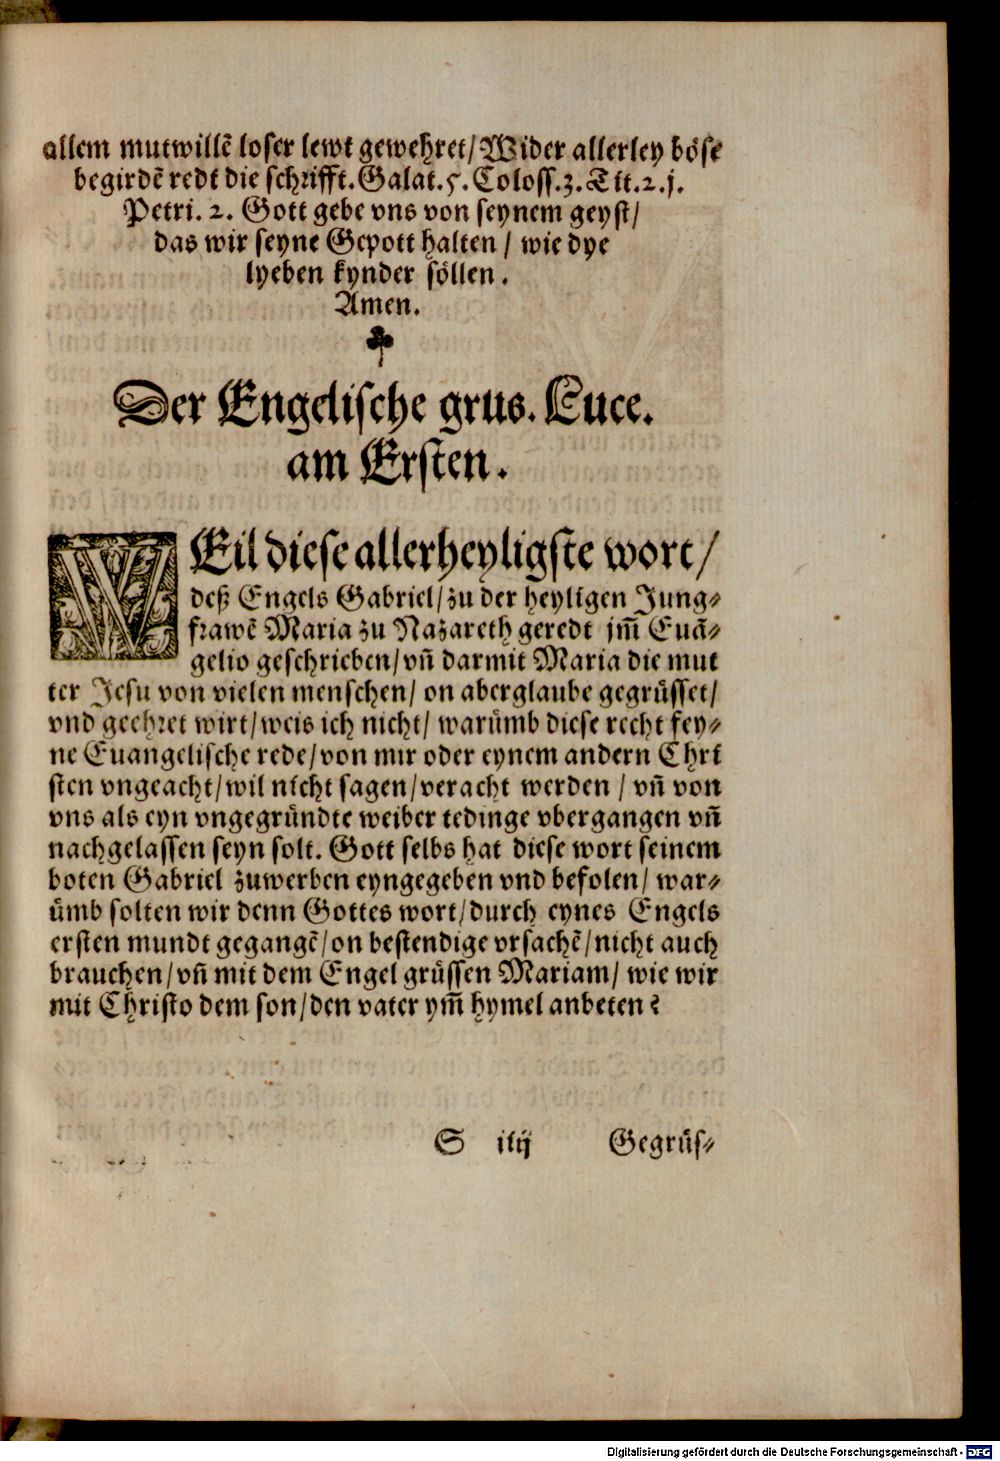 allem mutwillẽ loser lewt gewehret/Wider allerley böse
begirdẽ redt die schrifft. Galat.5.Coloss.3.Tit.2.j.
Petri. 2. Gott gebe vns von seynem geyst/
das wir seyne Gepott halten / wie dye
lyeben kynder söllen.
Amen.
Der Engelische grus. Luce.
am Ersten.
WEil diese allerheyligste wort/
deß Engels Gabriel/zu der heyligen Jung⸗
frawẽ Maria zu Nazareth geredt jm̃ Euã⸗
gelio geschrieben/vñ darmit Maria die mut
ter Jesu von vielen menschen/ on aberglaube gegrüsset/
vnd geehret wirt/weis ich nicht/ warümb diese recht fey⸗
ne Euangelische rede/von mir oder eynem andern Chri
sten vngeacht/wil nicht sagen/veracht werden / vñ von
vns als eyn vngegründte weiber tedinge vbergangen vñ
nachgelassen seyn solt. Gott selbs hat diese wort seinem
boten Gabriel zuwerben eyngegeben vnd befolen/ war⸗
ümb solten wir denn Gottes wort/durch eynes Engels
ersten mundt gegangẽ/on bestendige vrsachẽ/nicht auch
brauchen/vñ mit dem Engel grüssen Mariam/ wie wir
mit Christo dem son/den vater ym̃ hymel anbeten?
S iiij Gegrüs⸗
Digitalisierung gefördert durch die Deutsche Forschungsgemeinschaft - DFG